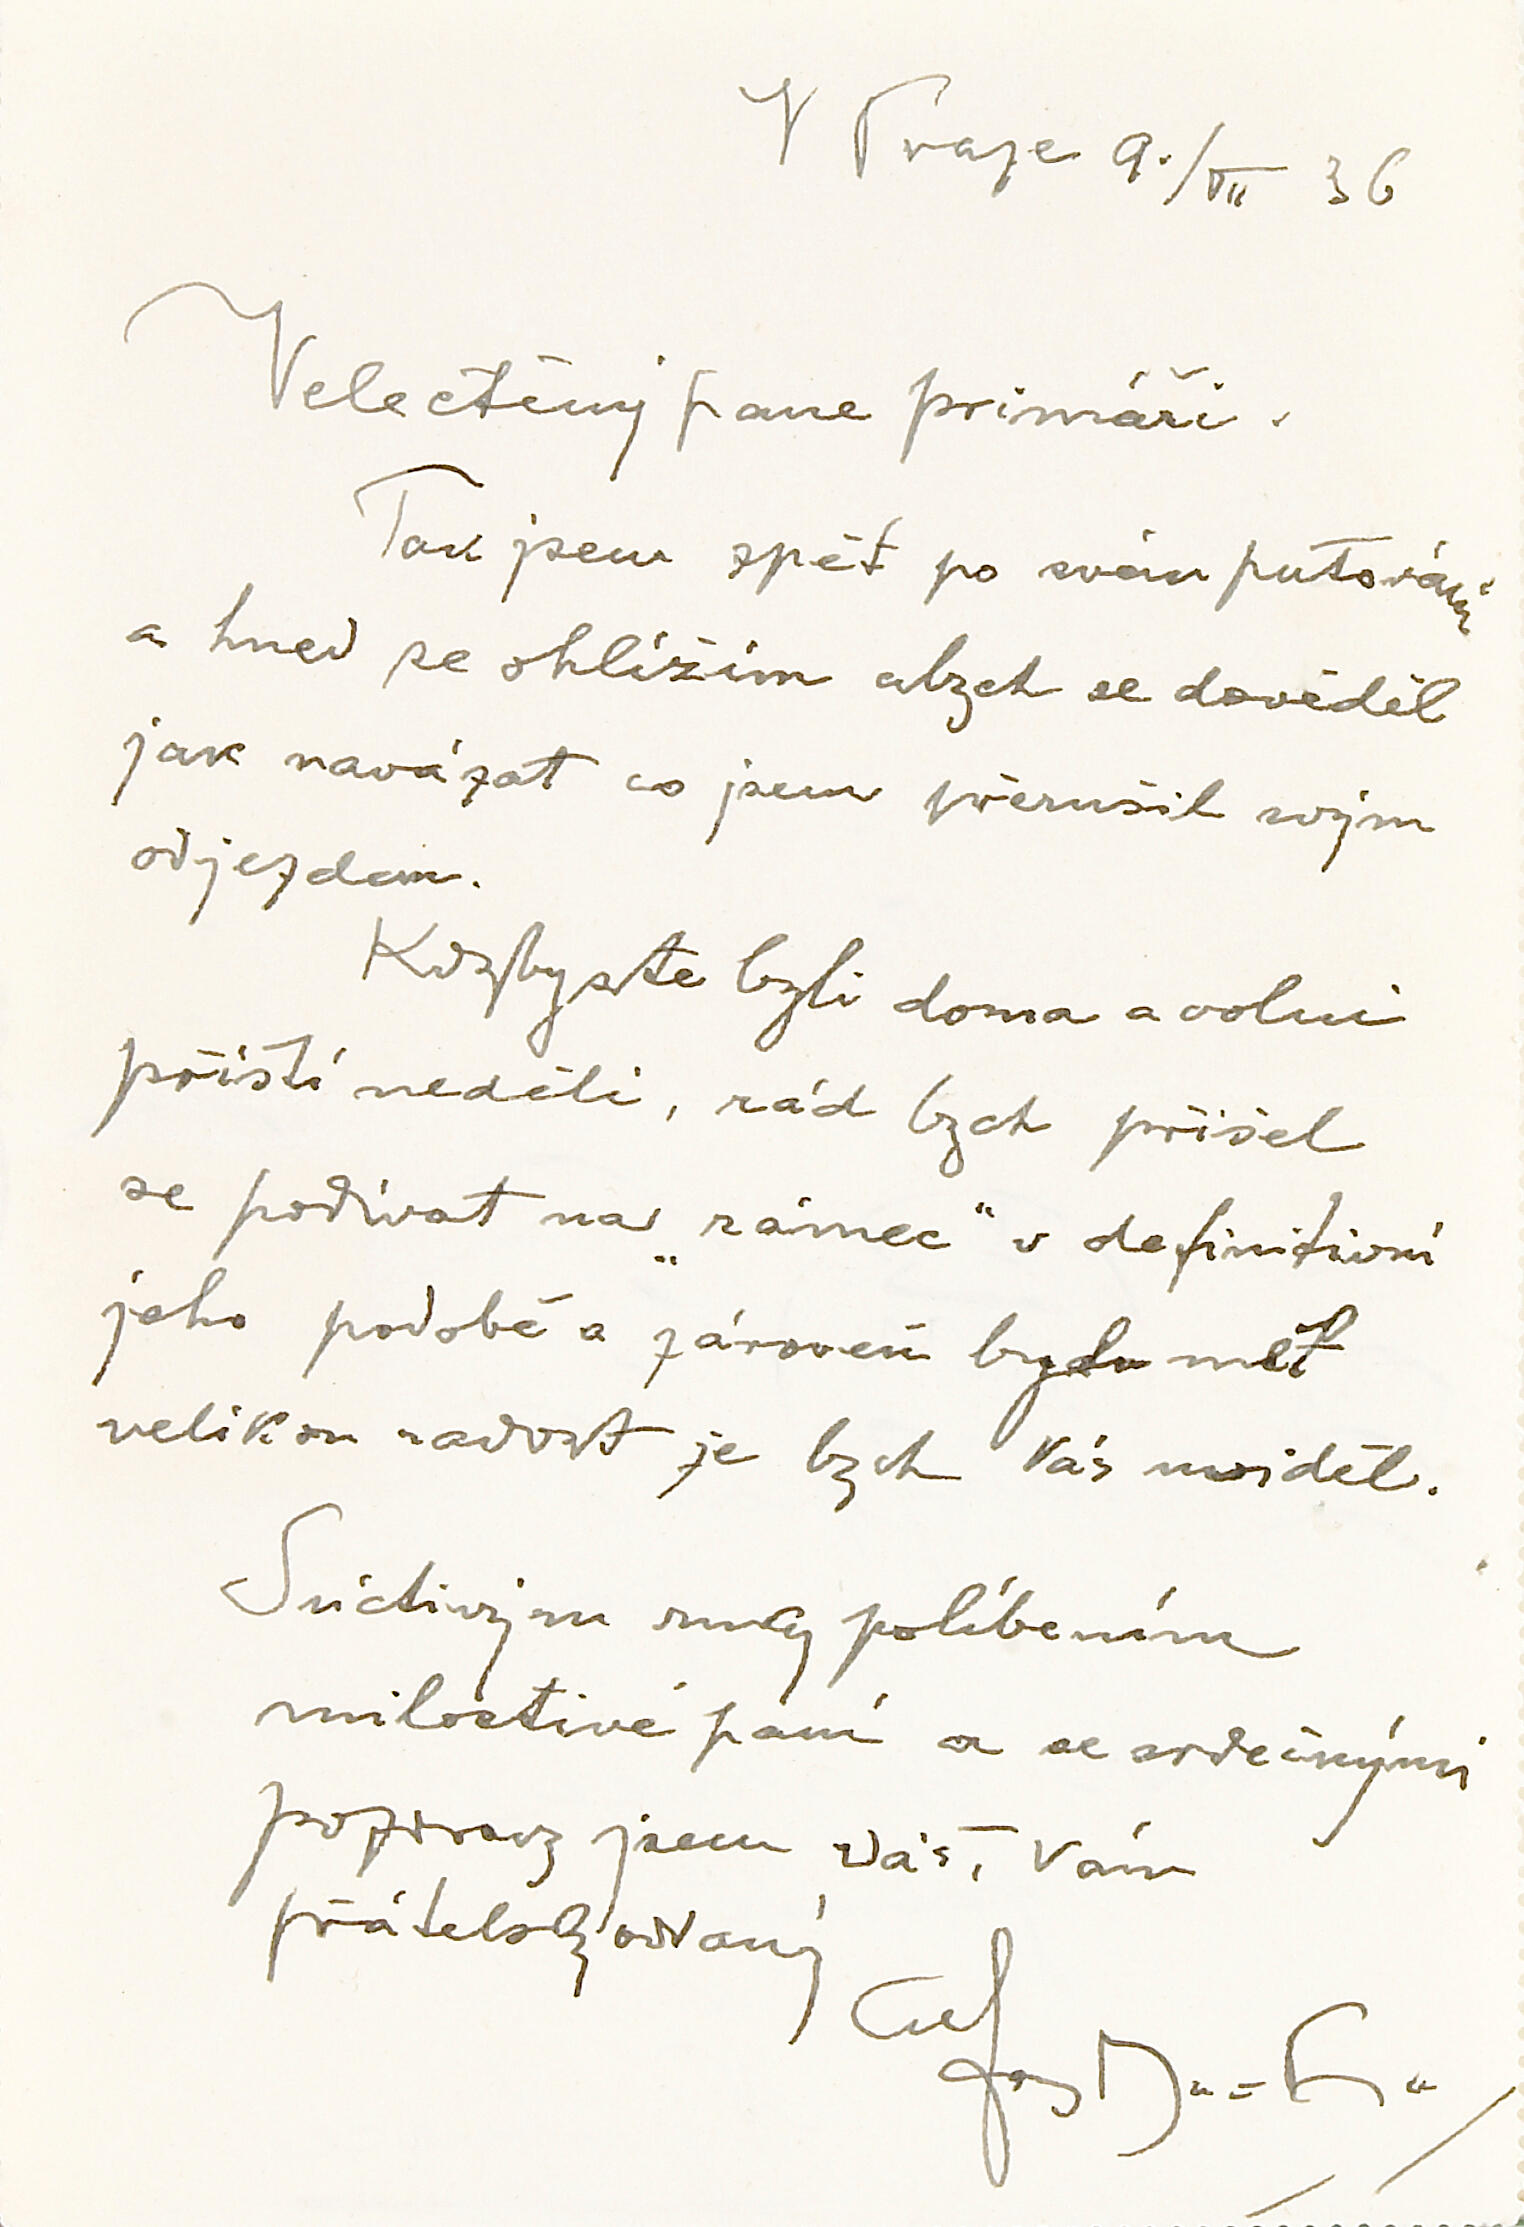 V Praze 9./VII 36
Velectěný pane primáři.
Tak jsem zpět po svém putování
a hned se ohlížím abych se dověděl
jak navázat co jsem přerušil svým
odjezdem.
Kdybyste byli doma a volni
příští neděli, rád bych přišel
se podívat na „rámec“ v definitivní
jeho podobě a zároveň budu mět
velikou radost že bych Vás uviděl.
S úctivým ruky políbením
milostivé paní a se srdečnými
pozdravy jsem Váš, Vám
přátelsky oddaný